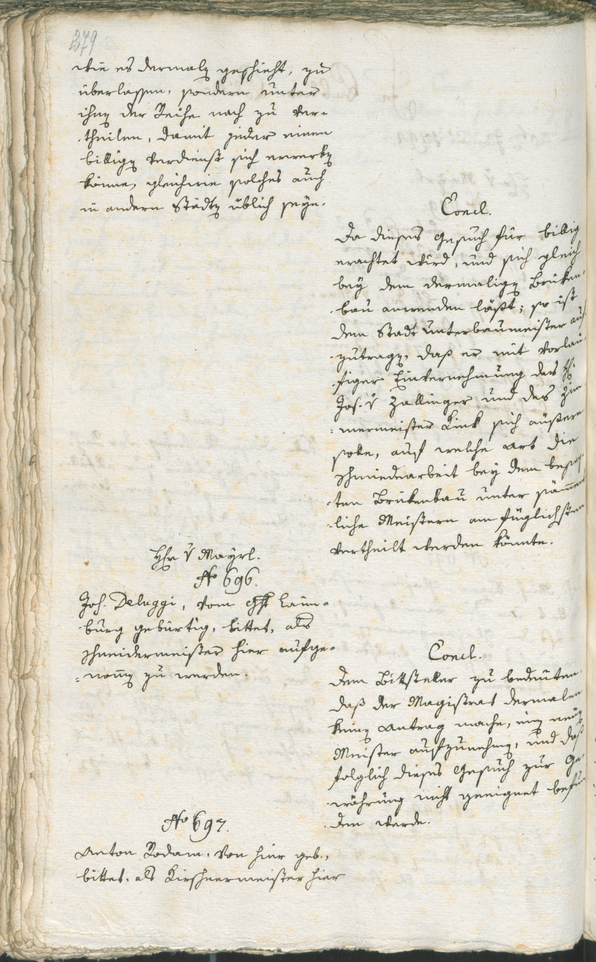 379
wie es dermalen geschieht, zu
überlassen, sondern unter
ihnen der Reihe nach zu ver-
theilen, damit jeder einen
billigen Verdienst sich erwerben
könne, gleichwie solches auch
in andern Städten üblich seye.
Concl.
Da dieses Gesuch für billig
erachtet wird, und sich gleich
bey dem dermaligen Brüken-
bau anwenden läßt; so ist
dem Stadtunterbaumeister auf
zutragen, daß er mit vorläu
figer Einvernehmung des H.
Jos. v Zallinger und des Zim
mermeister Link sich äußern
solle, auf welche Art die
Schmiedearbeit bey dem besag
ten Brükenbau unter sämmt
liche Meistern am füglichsten
vertheilt werden könnte.
Hhr v Mayrl.
No 696.
Joh. Deluggi, vom Gst Laim-
burg gebürtig, bittet, als
Schneidermeister hier aufge-
nommen zu werden.
Concl.
Dem Bittsteller zu bedeuten
daß der Magistrat dermalen
keinen Antrag mache, einen neuen
Meister aufzunehmen, und daß
folglich dieses Gesuch zur Ge
währung nicht geeignet befun
den werde.
No 697.
Anton Rodam, von hier geb.,
bittet, als Kirschnermeister hier